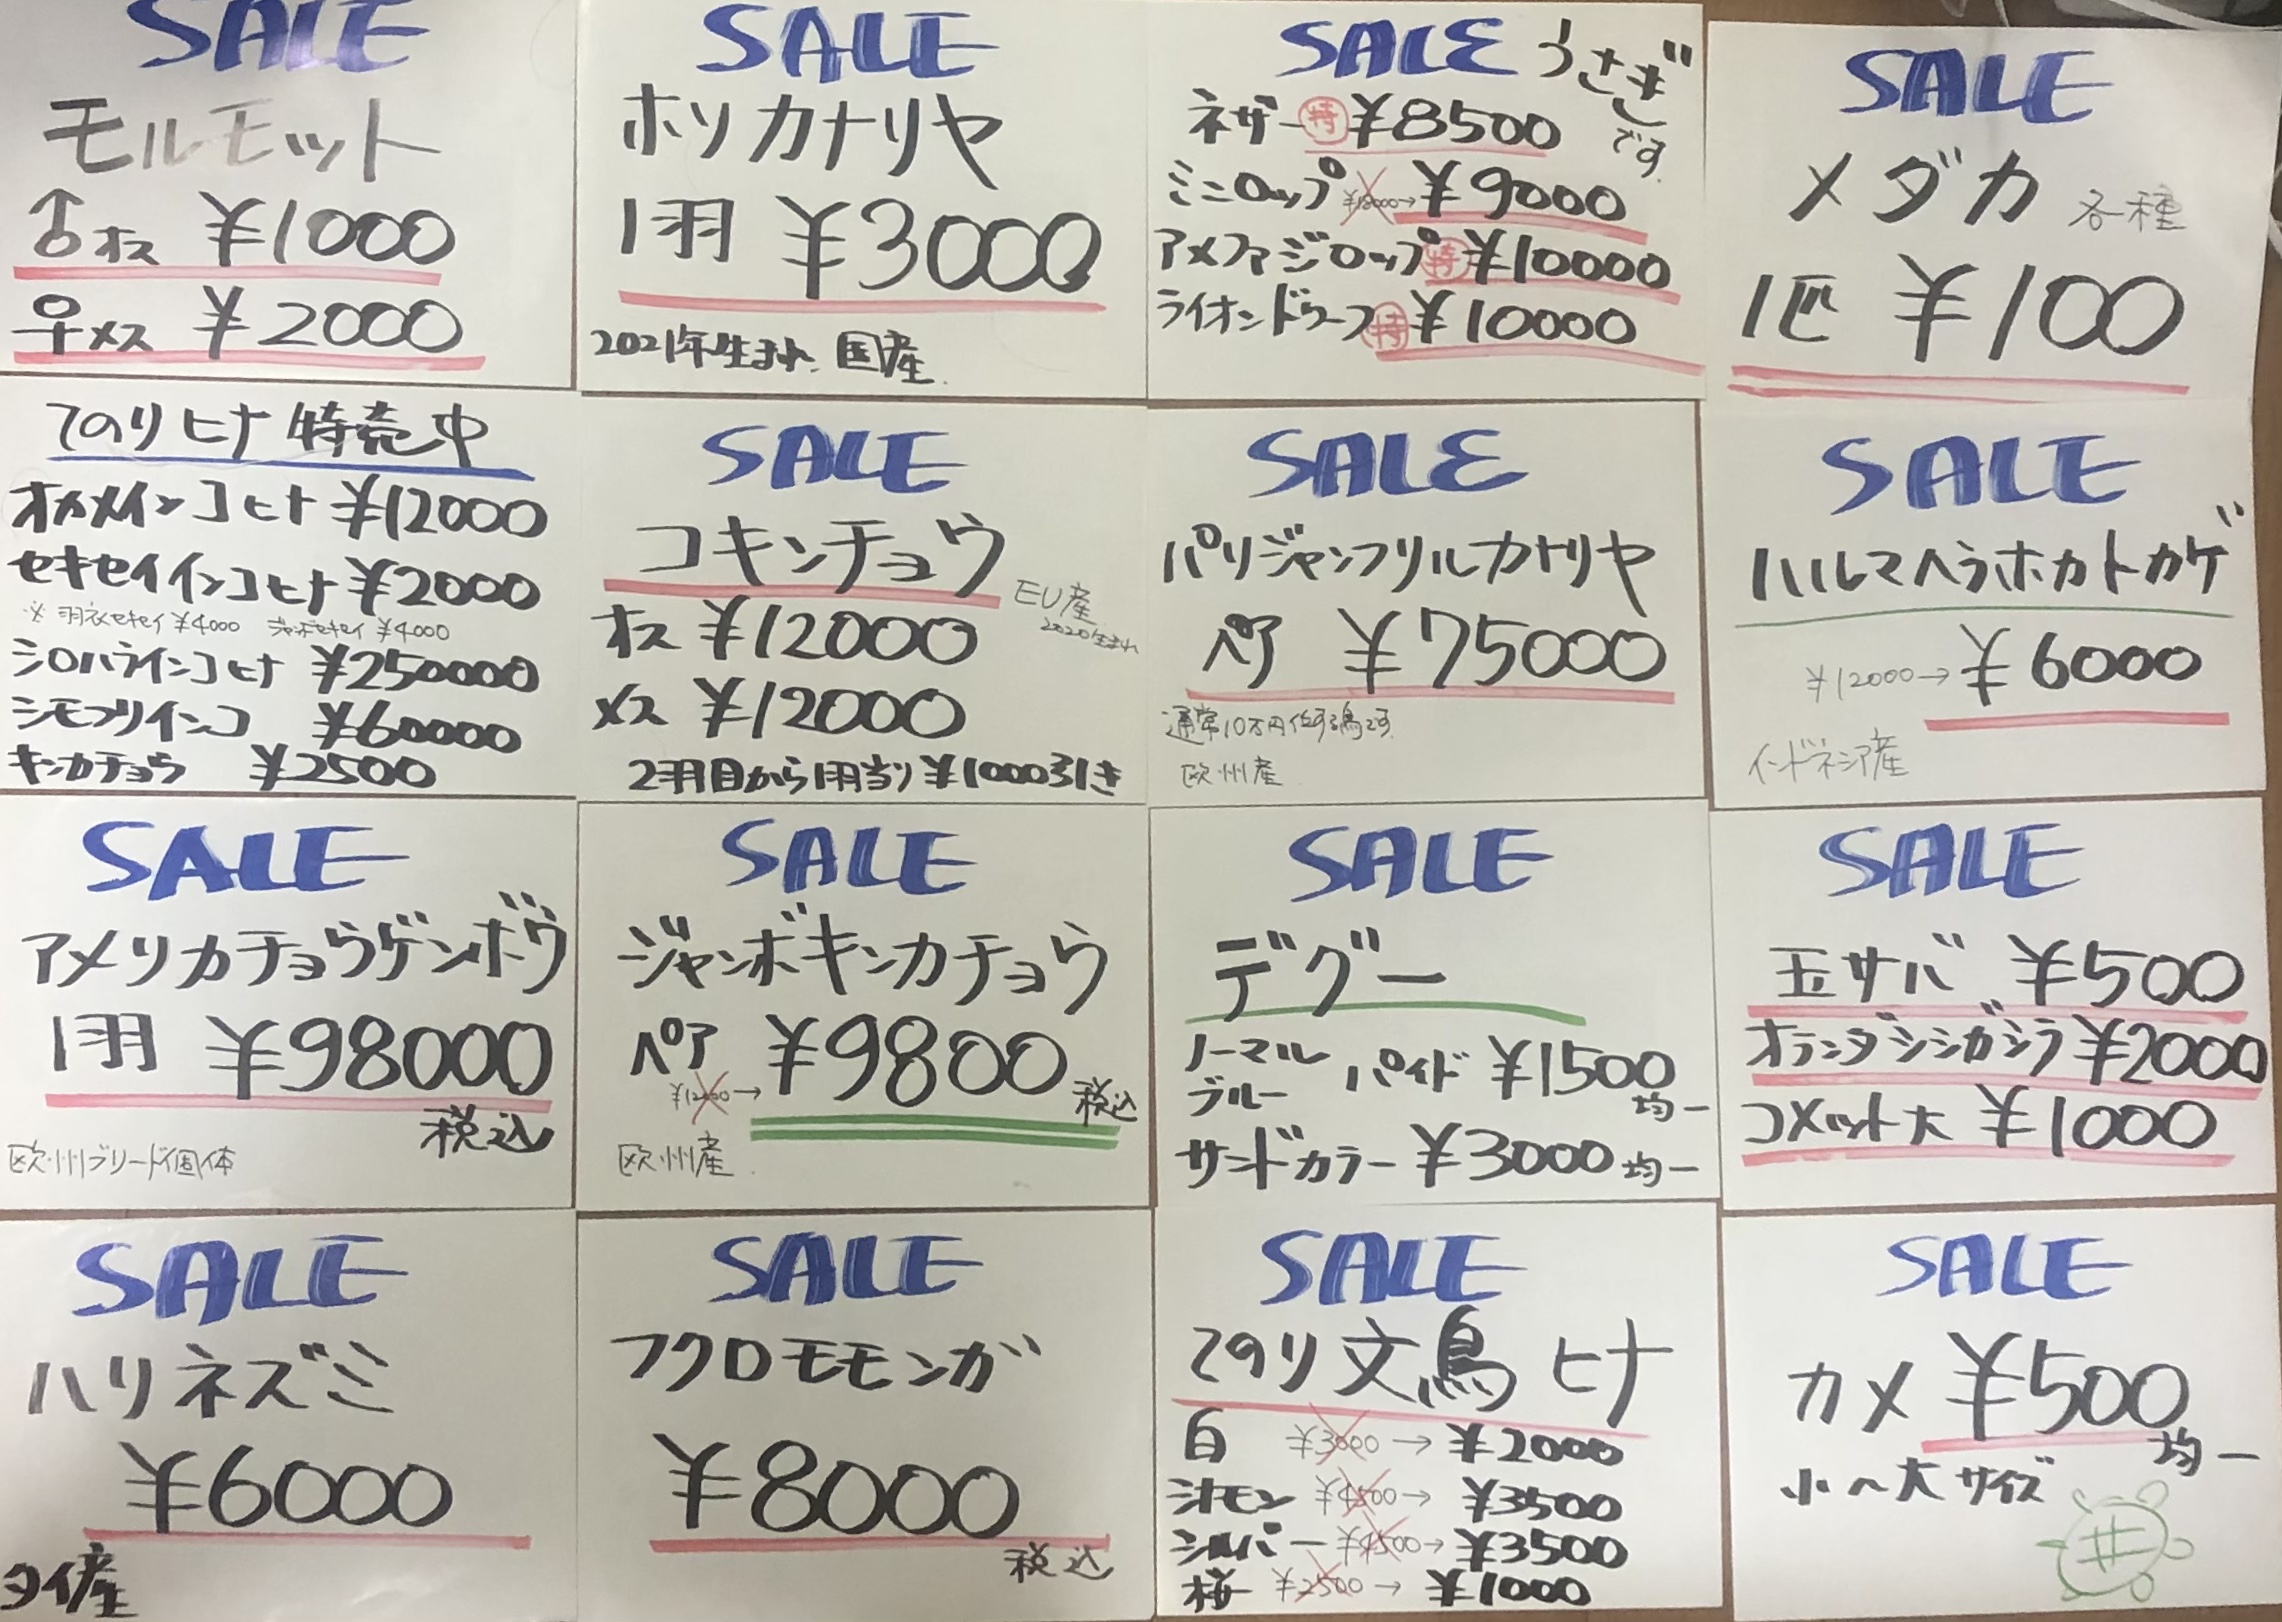 SALE
モルモット
♂オス ¥1000
♀メス ¥2000
SALE
ホソカナリヤ
1羽 ¥3000
2021年生まれ. 国産.
SALE うさぎです.
ネザー 特 ¥8500
ミニロップ → ¥9000
アメファジロップ 特 ¥10000
ライオンドワーフ 特 ¥10000
SALE
メダカ 各種
1匹 ¥100
てのりヒナ特売中
オカメインコヒナ ¥12000
セキセイインコヒナ ¥2000
※羽衣セキセイ¥4000 ジャンボセキセイ ¥4000
シロハラインコヒナ ¥250000
シモフリインコ ¥60000
キンカチョウ ¥2500
SALE
コキンチョウ
EU産
2020生まれ
オス ¥12000
メス ¥12000
2羽目から1羽当り¥1000引き
SALE
パリジャンフリルカナリヤ
ペア ¥75000
通常10万円位する鳥です.
欧州産
SALE
ハルマヘラホカトカゲ
¥12000→ ¥6000
インドネシア産
SALE
アメリカチョウゲンボウ
1羽 ¥98000
税込
欧州ブリード個体
SALE
ジャンボキンカチョウ
ペア → ¥9800 税込
欧州産.
SALE
デグー
ノーマル ブルー パイド ¥1500 均一
サンドカラー ¥3000 均一
SALE
玉サバ ¥500
オランダシシガシラ ¥2000
コメット大 ¥1000
SALE
ハリネズミ
¥6000
タイ産
SALE
フクロモモンガ
¥8000
税込
SALE
てのり文鳥ヒナ
白 ¥3000 → ¥2000
シナモン ¥4500 → ¥3500
シルバー ¥4500→ ¥3500
桜 ¥2500 → ¥1000
SALE
カメ ¥500
均一
小〜大サイズ